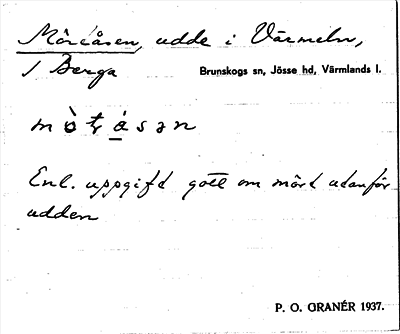 Mörtåsen, udde i Värmeln,
/ Berga
Brunskogs sn, Jösse hd, Värmlands l.
m ò ţ á s ə n
Enl. uppgift gott om mört utanför
udden
P. O. GRANÉR 1937.